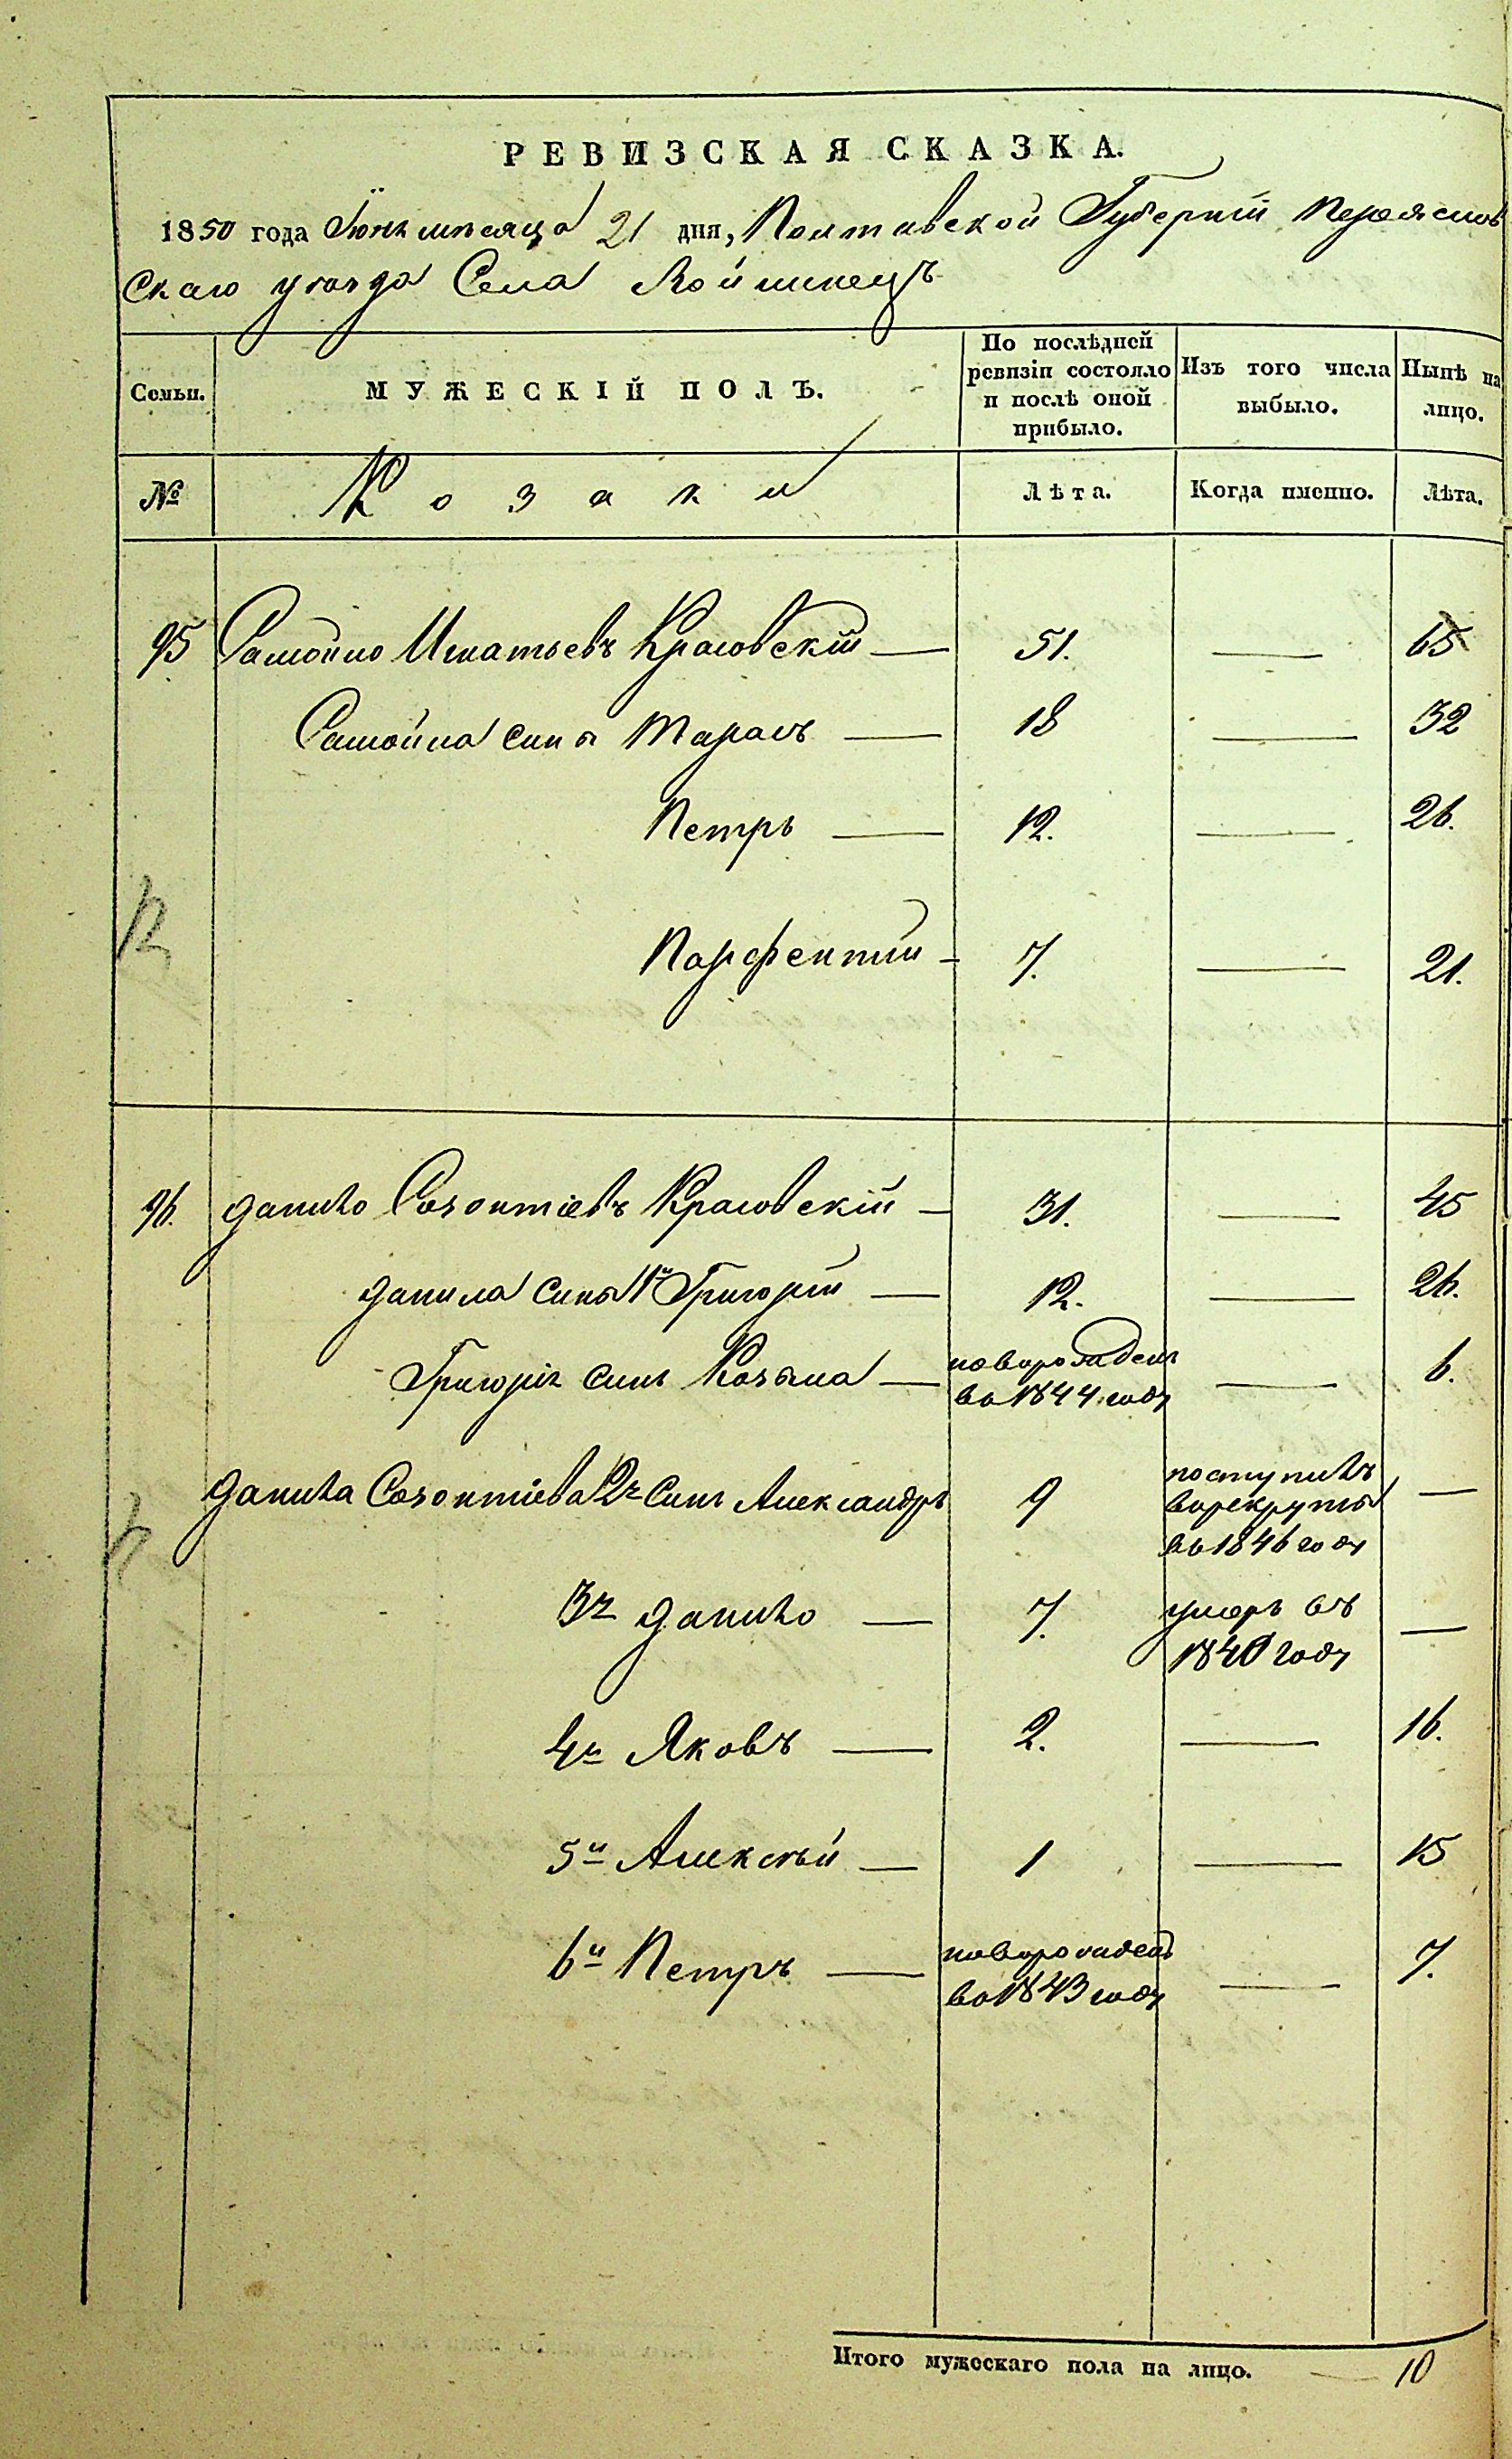 РЕВИЗСКАЯ СКАЗКА.
1850 года Іюня мѣсяца 21 дня, Полтавской Губерніи Переяслов
скаго уѣзда Села Войтовецъ
Семьи. МУЖЕСКІЙ ПОЛЪ. По послѣдней ревизіи состояло и послѣ оной прибыло. Изъ того числа выбыло. Нынѣ на лицо.
№ Козаки Лѣта. Когда именно. Лѣта.
95 Самойло Игнатьевъ Красовскій — 51. — 65
Самойла сины Тарасъ — 18 — 32
Петръ — 12. — 26.
Парфентій — 7. — 21.
96. Данило Созонтіевъ Красовскій — 31. — 45
Данила сины 1й Григорій — 12. — 26.
Григорія синъ Козьма — новорожденъ во 1844 году — 6.
Данила Созонтіева 2й Синъ Александръ 9 поступилъ в рекруты во 1846 году —
3й Данило — 7. умеръ въ 1840 году —
4й Яковъ — 2. — 16.
5й Алексѣй — 1 — 15
6й Петръ — новорожденъ во 1843 году — 7.
Итого мужескаго пола на лицо. — 10